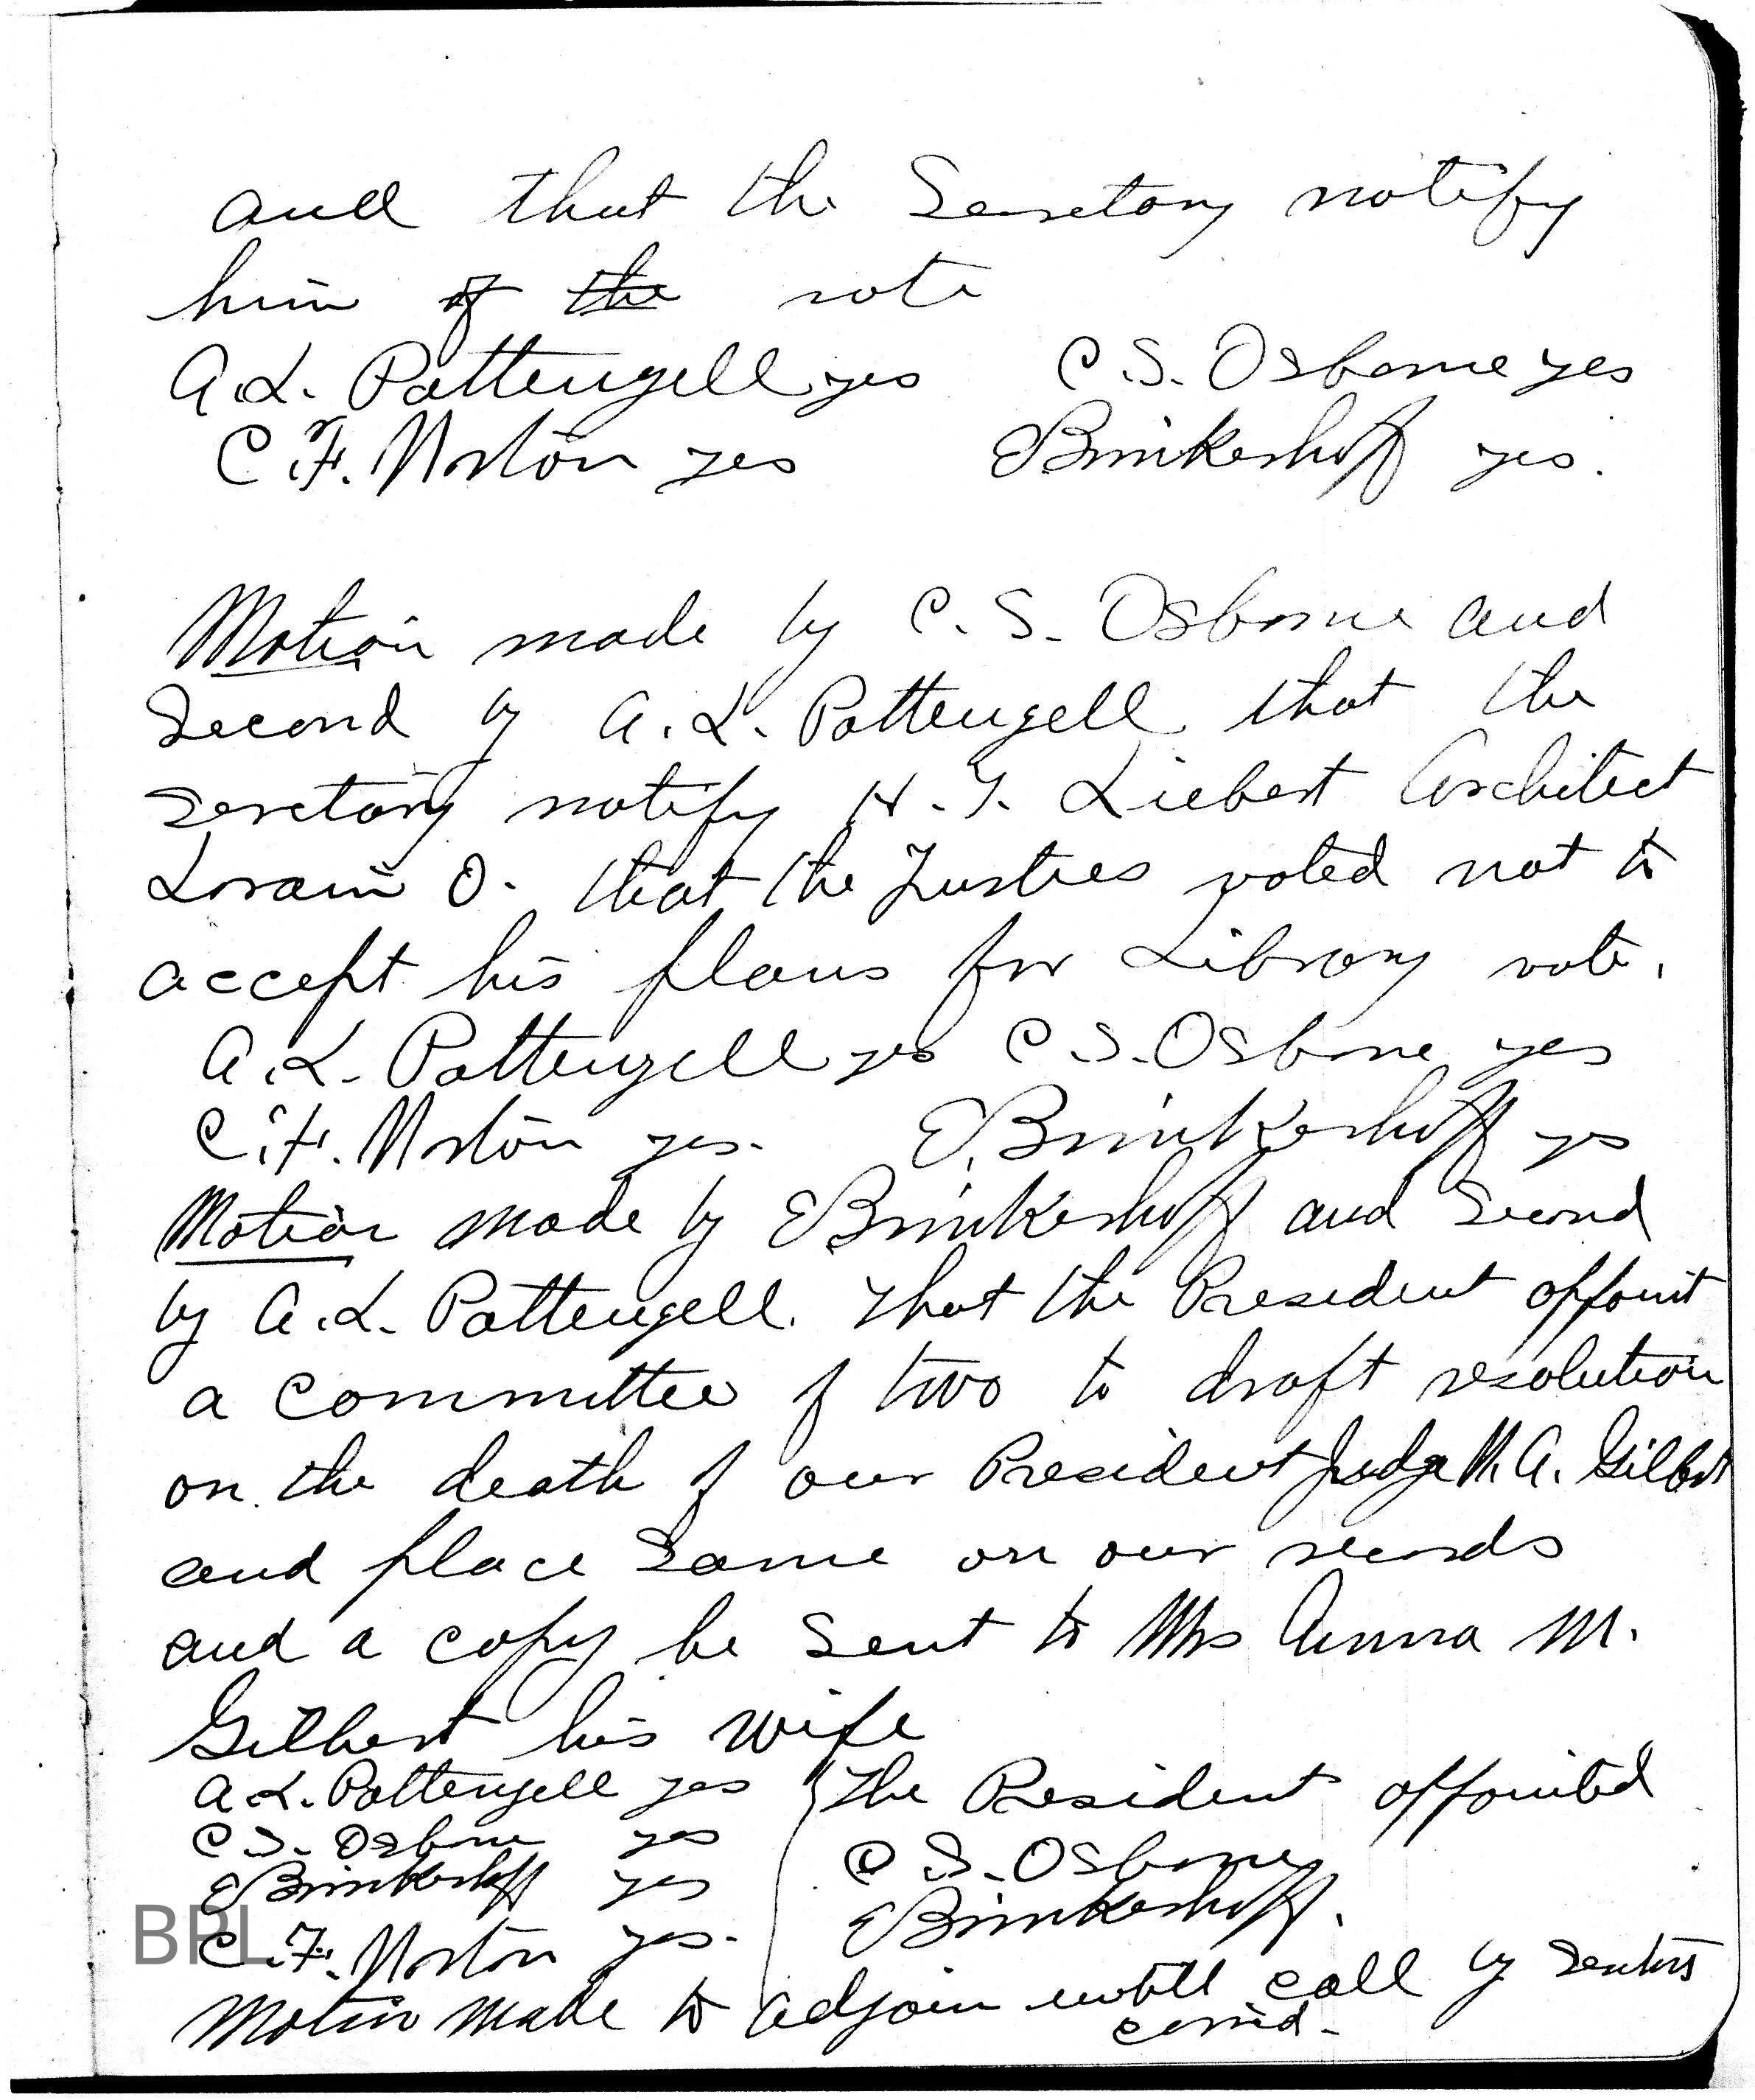 and that the Secretary notify
him of the vote
A.L. Pattengell yes C.S. Osborne yes
C.F. Norton yes EBrinkerhoff yes.
Motion made by C.S. Osborne and
Second by A.L. Pattengell that the
secretary notify H.T. Liebert Architect
Lorain O. that the Trustees voted not to
accept his plans for Library vote.
A.L. Pattengell yes C.S. Osborne yes
C.F. Norton yes. E.Brinkerhoff yes
Motion made by EBrinkerhoff and Second
by A.L. Pattengell. That the President appoint
a committee of two to draft resolution
on the death of our President Judge A. Gilbert
and place Same on our records
and a copy be Sent to Mrs Anna M.
Gilbert his wife
A L. Pattengell yes The President appointed
C S. Osborne yes C S. Osborne
EBrinkerhoff yes EBrinkerhoff.
C.F. Norton yes.
Motion made to adjourn untill call by
carried.
BPL